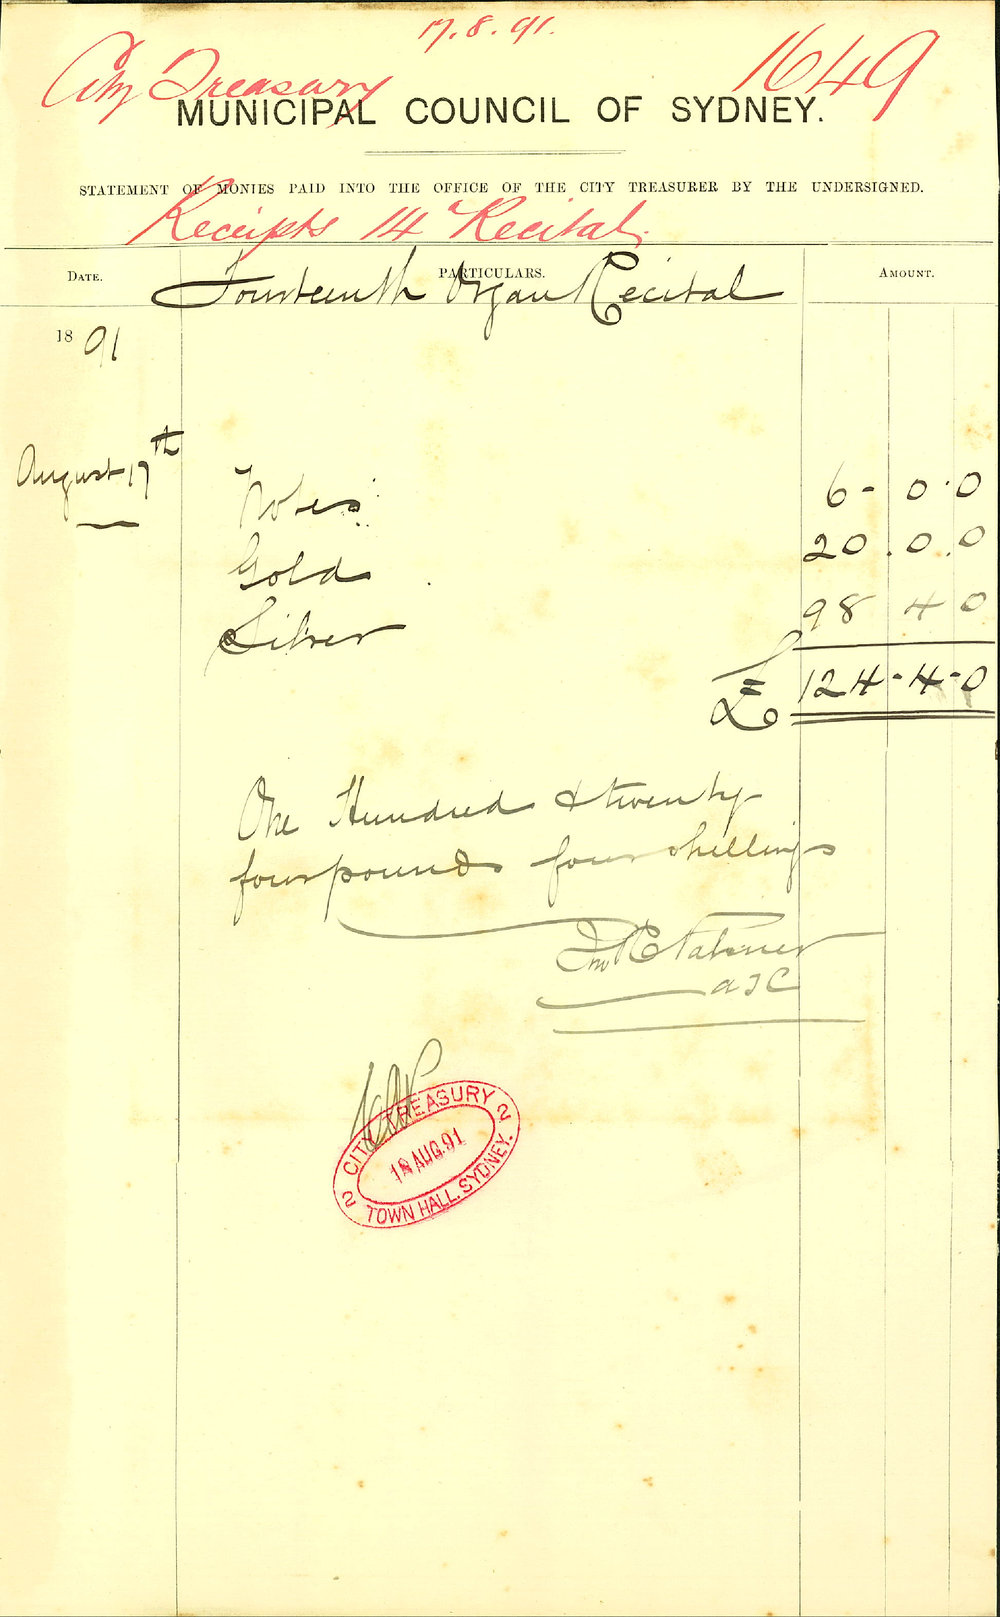 17.8.91.
City Treasury 1649
MUNICIPAL COUNCIL OF SYDNEY.
STATEMENT OF MONIES PAID INTO THE OFFICE OF THE CITY TREASURER BY THE UNDERSIGNED.
Receipts 14th Recital.
DATE. PARTICULARS. AMOUNT.
Fourteenth Organ Recital
18 91
August 17th
Notes 6-0.0
Gold 20.0.0
Silver 98 4 0
£ 124-4-0
One Hundred & twenty
four pounds four shillings
Jno E Palmer
ATC
CITY TREASURY
18 AUG.91
2 2
TOWN HALL.SYDNEY.